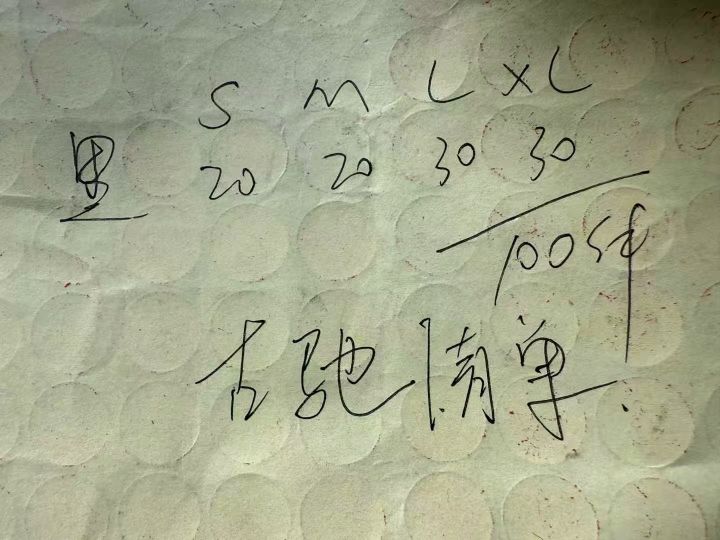 S M L XL
黑 20 20 30 30
100件
古驰清单